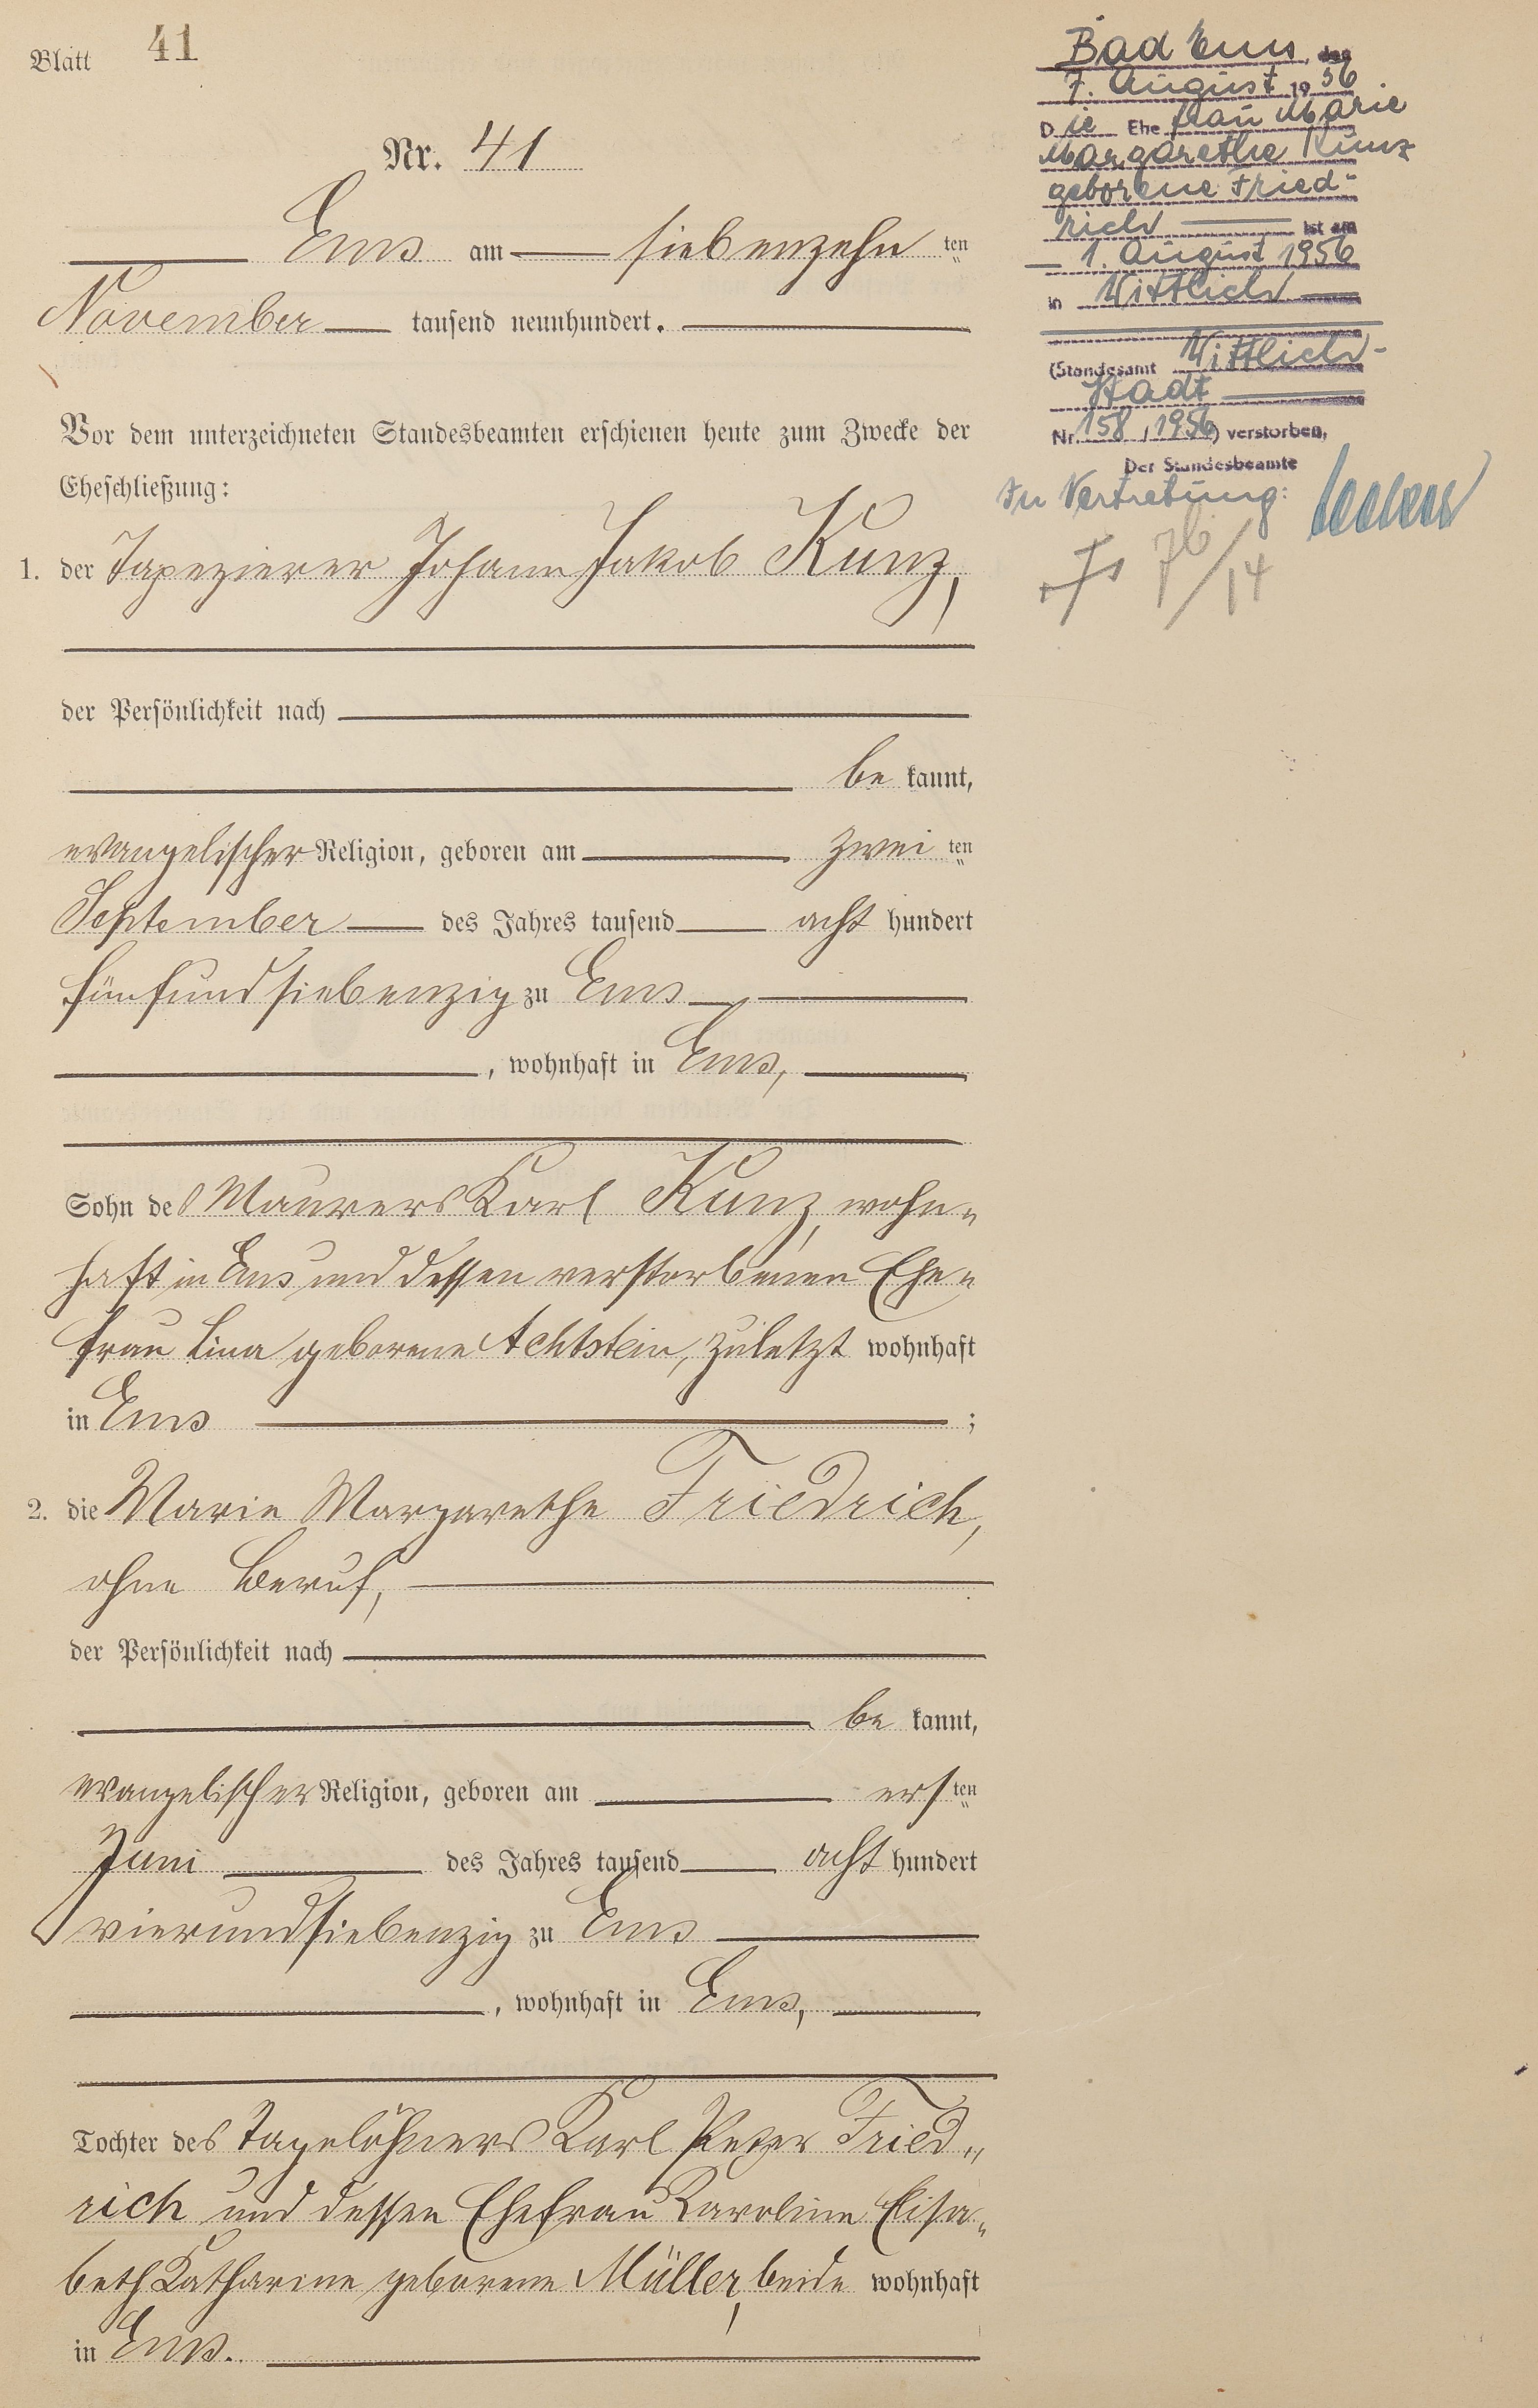 Blatt 41
Nr. 41
Ems am siebenzehn ten
November tausend neunhundert.
Vor dem unterzeichneten Standesbeamten erschienen heute zum Zwecke der
Eheschließung:
1. der Tapezierer Johann Jakob Kunz,
der Persönlichkeit nach
be kannt,
evangelischer Religion, geboren am zwei ten
September des Jahres tausend acht hundert
fünfundsiebenzig zu Ems
, wohnhaft in Ems,
Sohn des Maurers Karl Kunz, wohn-
haft in Ems und dessen verstorbenen Ehe-
frau Lina geborene Achtstein, zuletzt wohnhaft
in Ems ;
2. die Marie Margarethe Friedrich,
ohne Beruf,
der Persönlichkeit nach
be kannt,
evangelischer Religion, geboren am ers ten
Juni des Jahres tausend acht hundert
vierundsiebenzig zu Ems
, wohnhaft in Ems,
Tochter des Tagelöhners Karl Peter Fried-
rich und dessen Ehefrau Karoline Elisa-
beth Katharine geborene Müller, beide wohnhaft
in Ems.
Bad Ems, den
7. August 1956
Die Ehefrau Marie
Margarethe Kunz
geborene Fried-
rich ist am
1. August 1956
in Wittlich
(Standesamt Wittlich-
Stadt
Nr. 158 / 1956) verstorben,
Der Standesbeamte
In Vertretung:
76/14